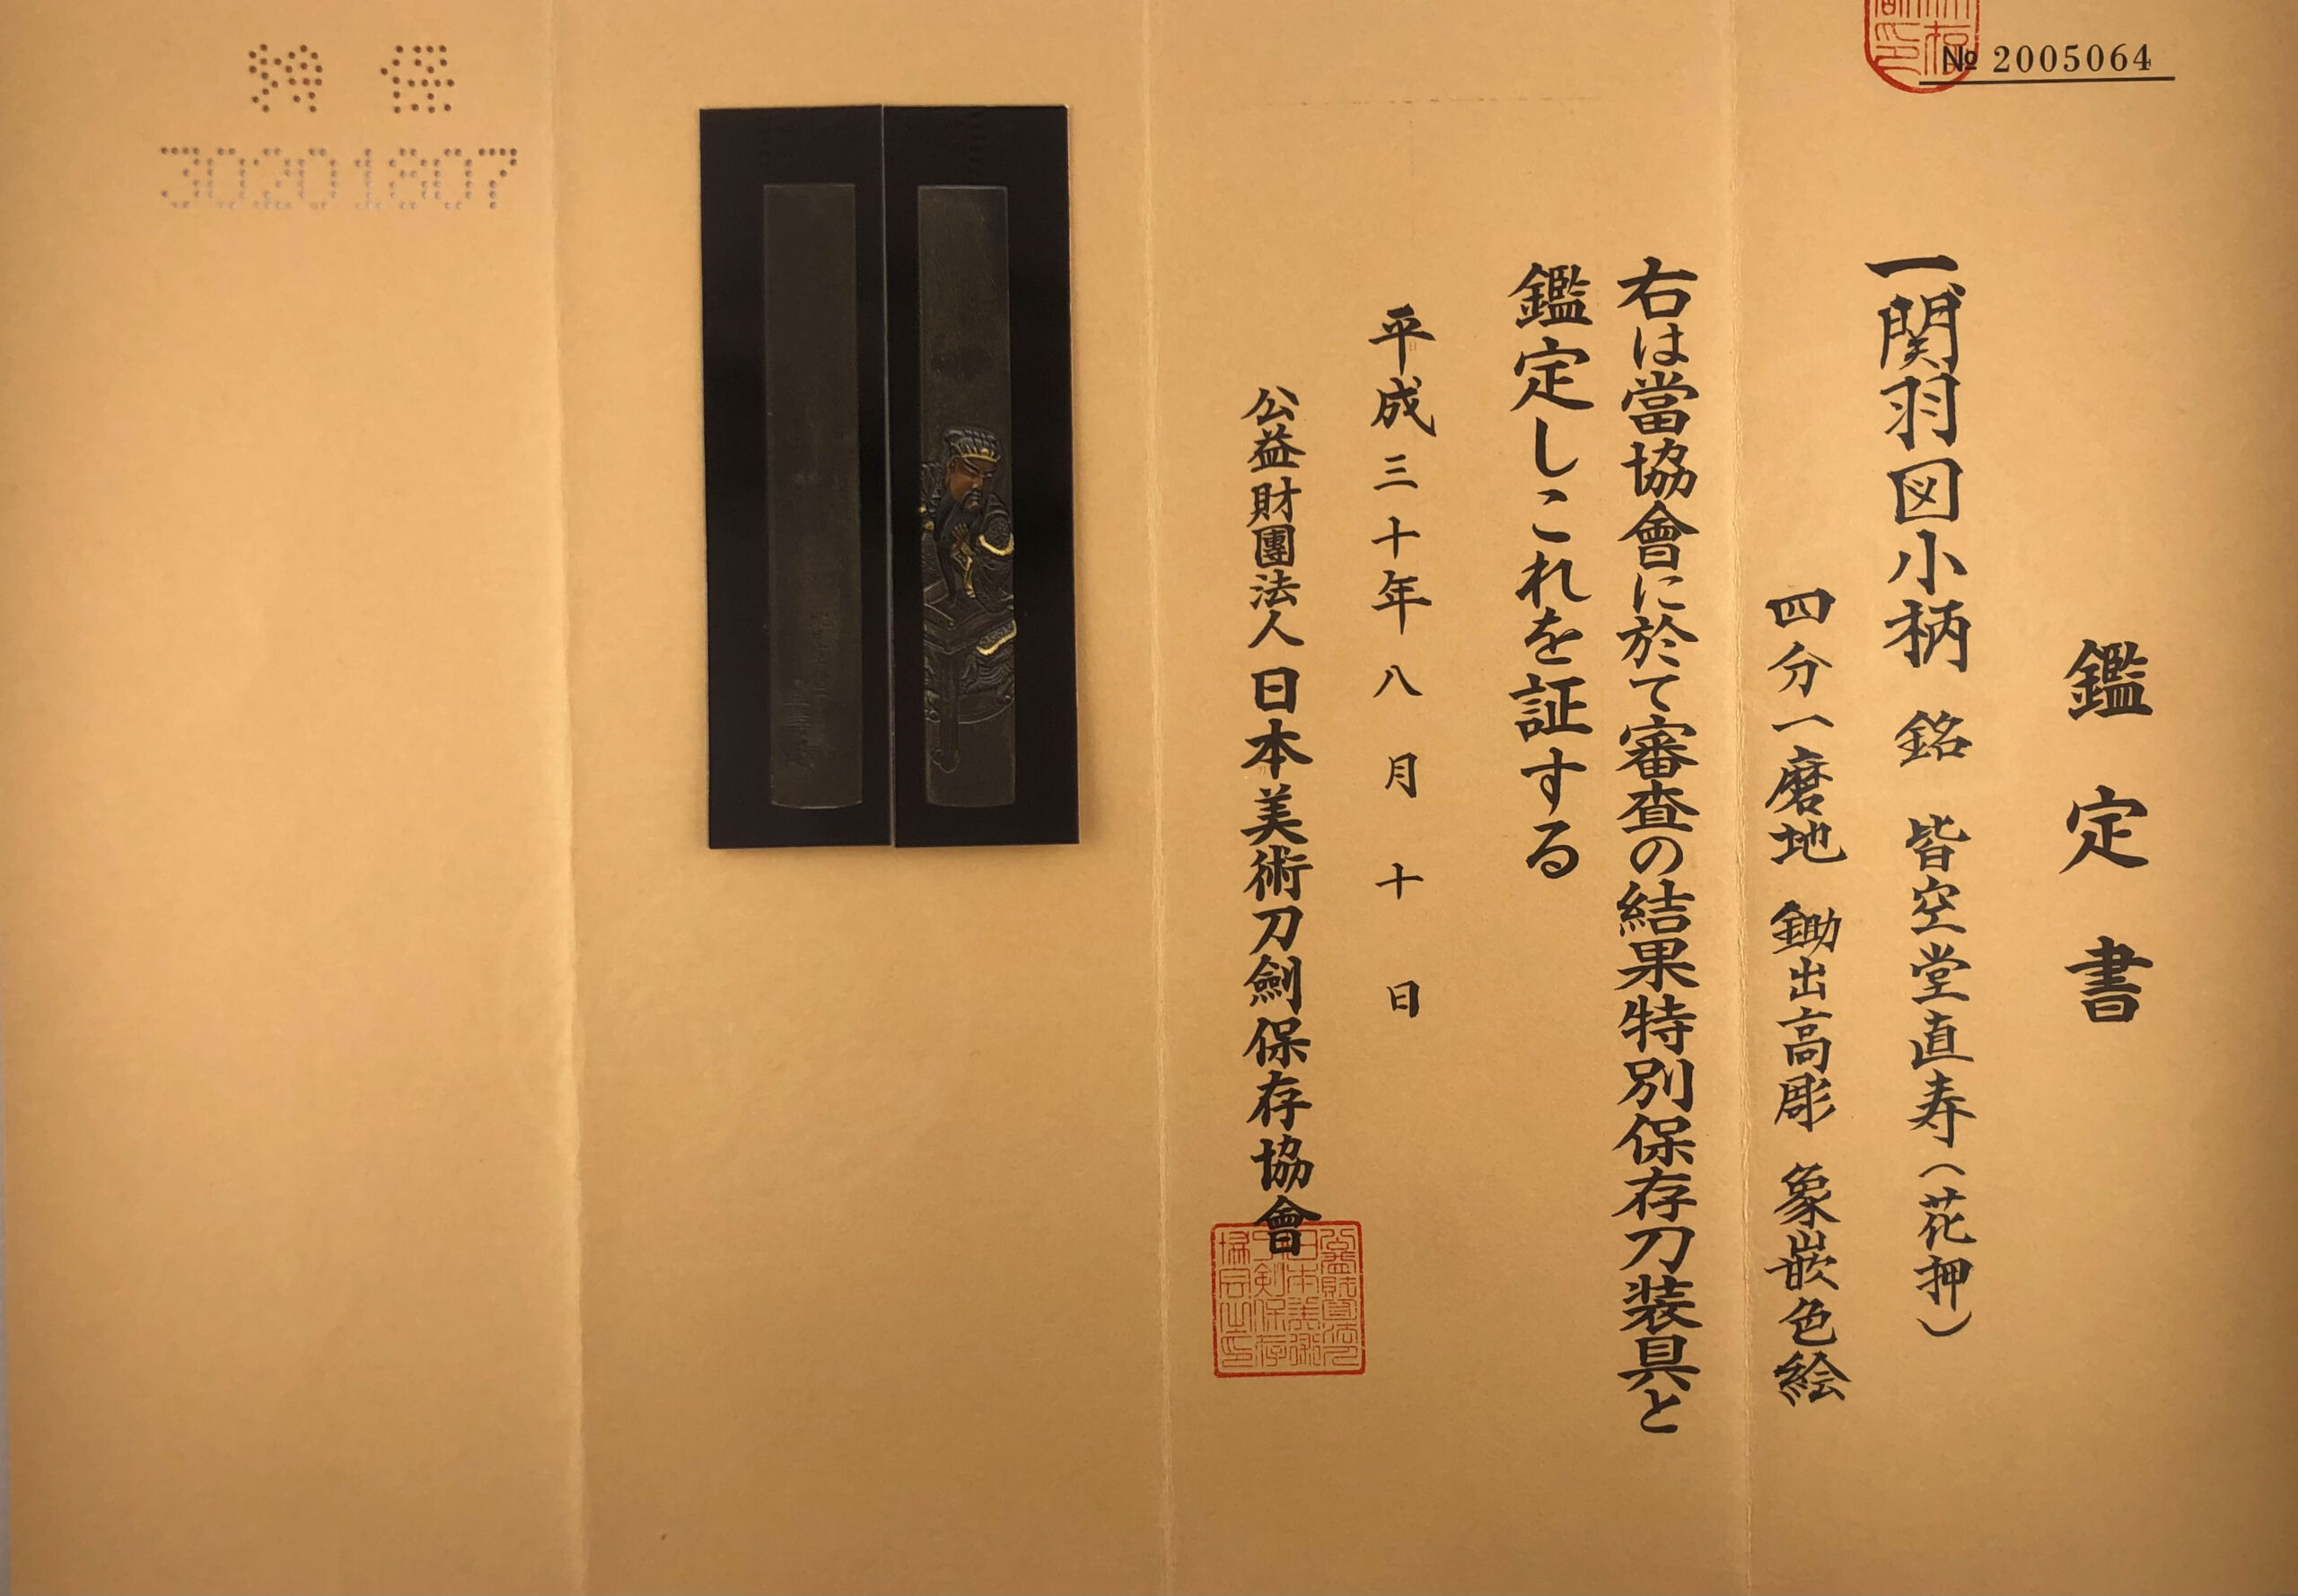 № 2005064
鑑定書
一関羽図小柄 銘 皆空堂直寿（花押）
四分一磨地 鋤出高彫 象嵌色絵
右は當協會に於て審査の結果特別保存刀装具と
鑑定しこれを証する
平成三十年八月十日
公益財團法人日本美術刀劍保存協會
特保
30201807